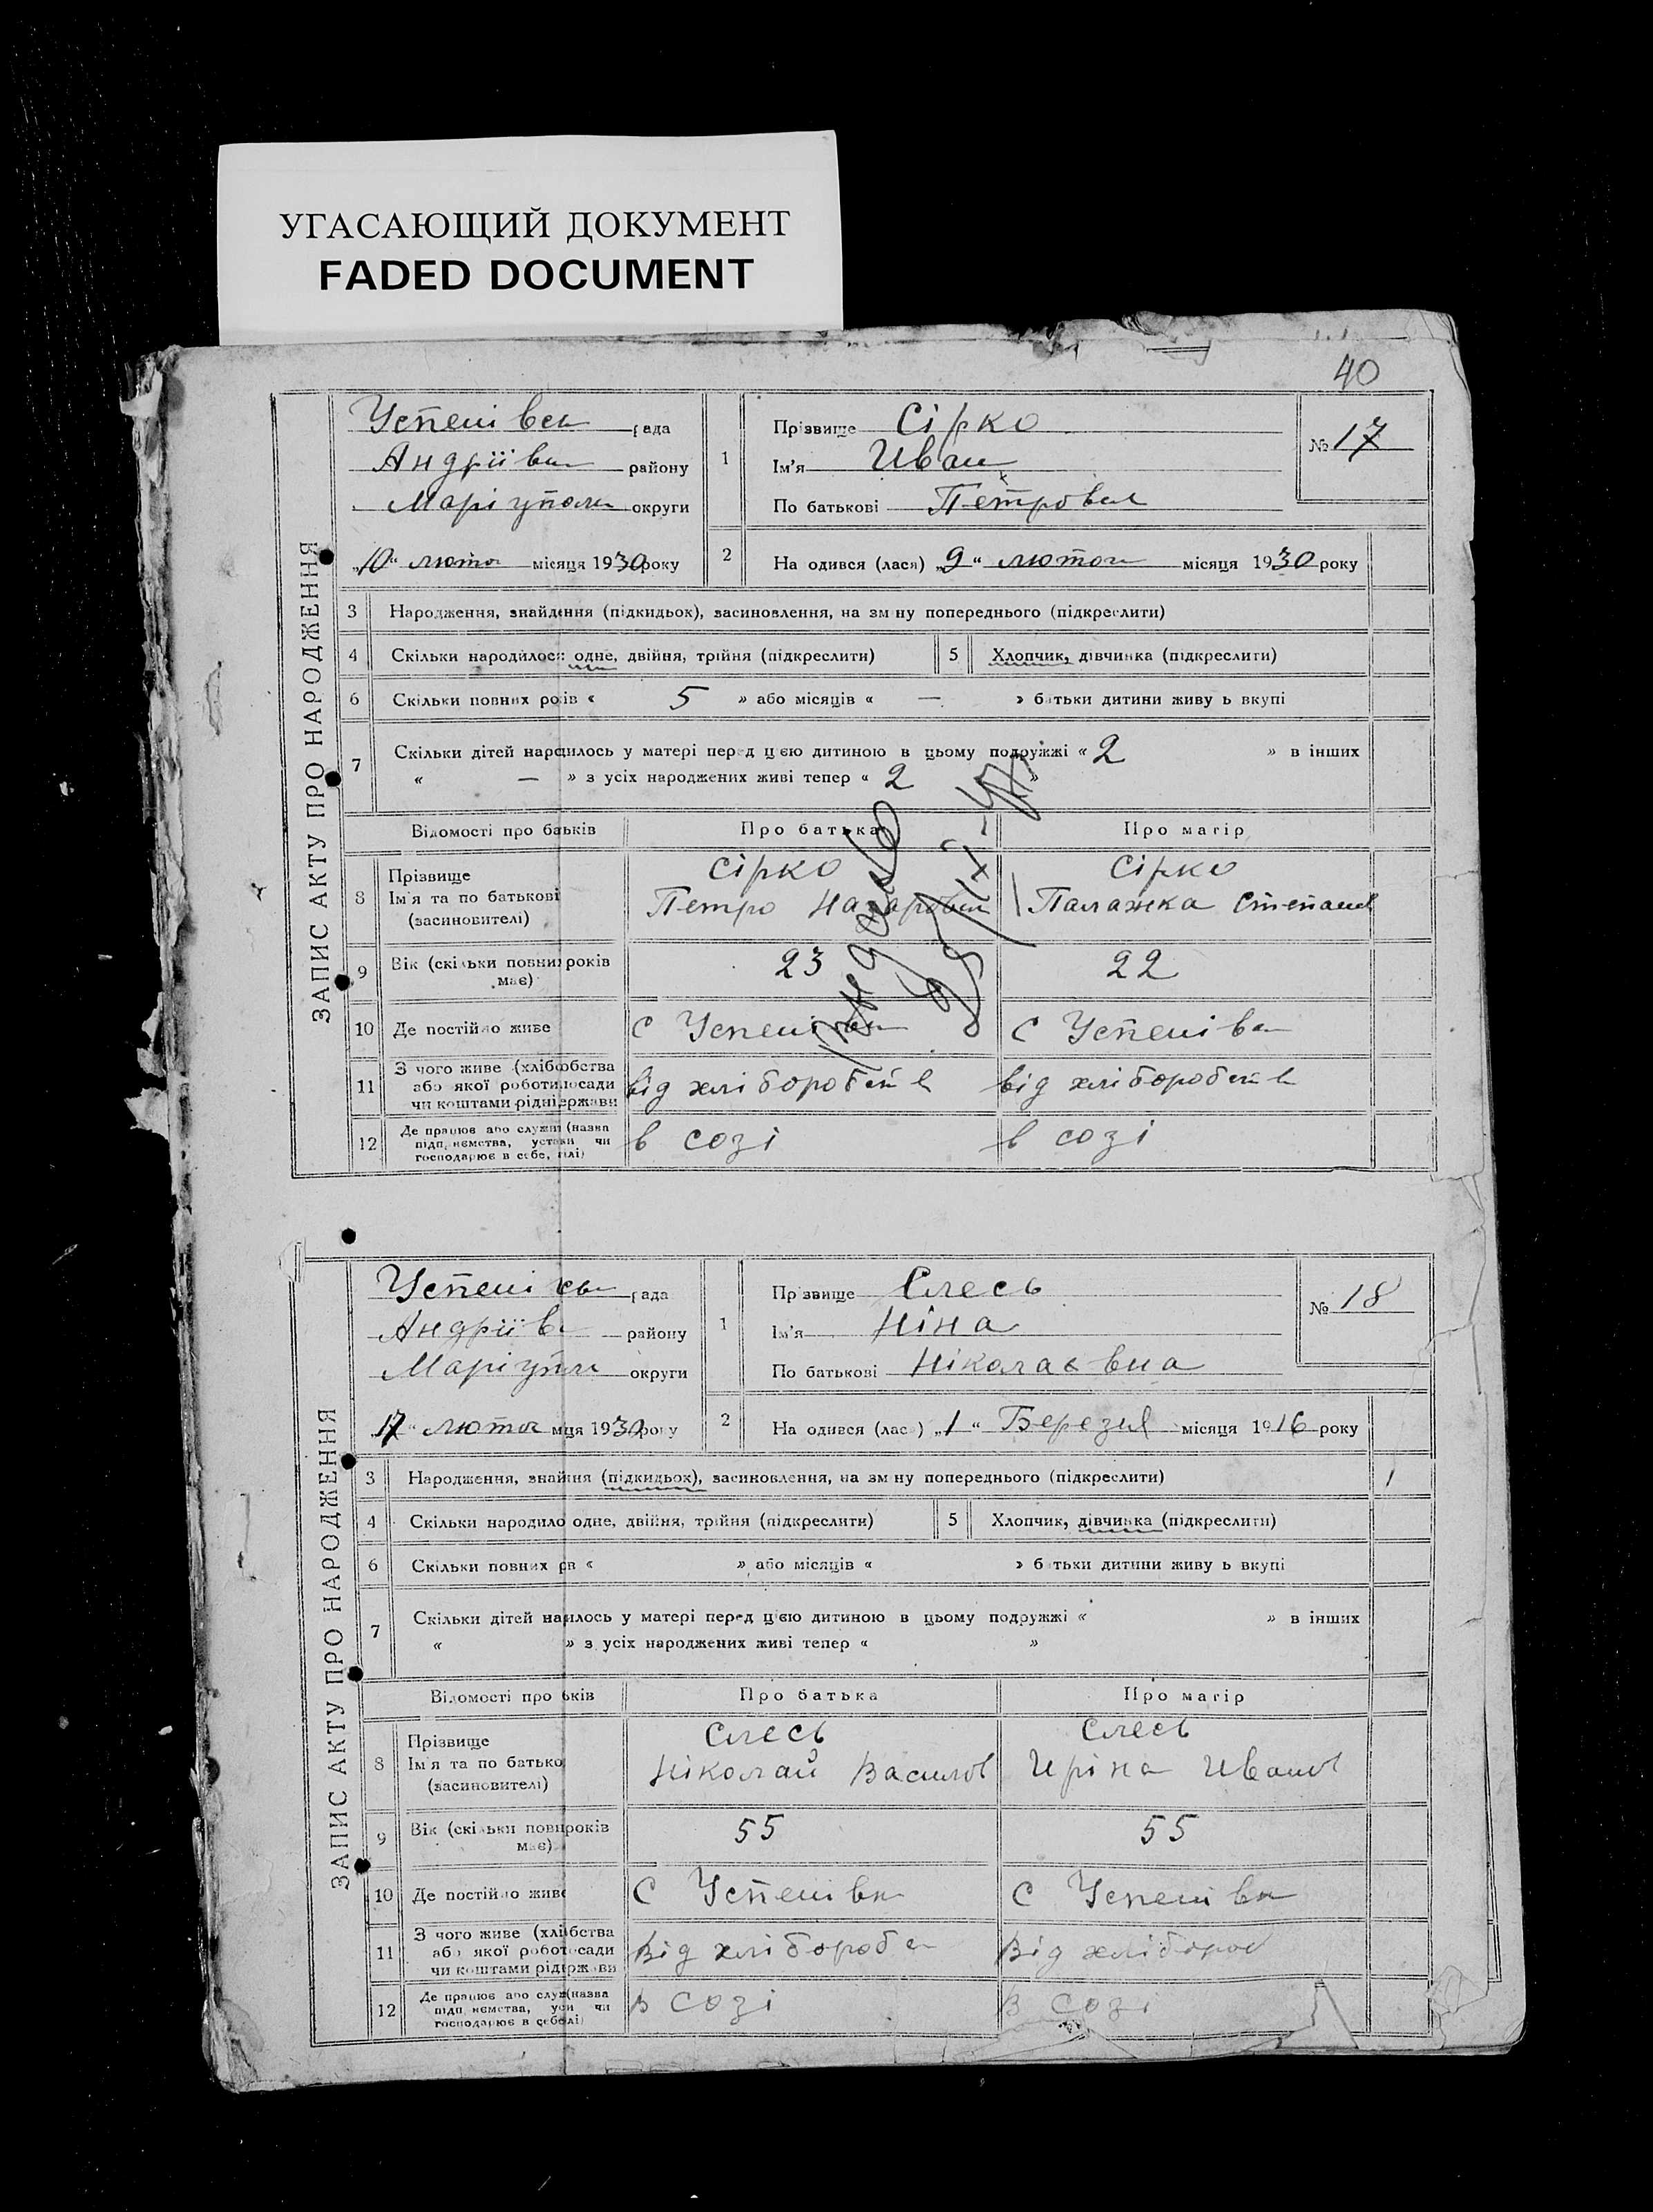 УГАСАЮЩИЙ ДОКУМЕНТ
FADED DOCUMENT
40
ЗАПИС АКТУ ПРО НАРОДЖЕННЯ
Успенівськ рада
Андріївськ району
Маріупольськ округи
„10“ лютого місяця 1930 року
1
Прізвище Сірко
Ім'я Иван
По батькові Петрович
№ 17
2
На одився (лася) „9“ лютого місяця 1930 року
3 Народження, знайдення (підкидьок), засиновлення, на зм ну попереднього (підкреслити)
4 Скільки народилося: одне, двійня, трійня (підкреслити)
5 Хлопчик, дівчинка (підкреслити)
6 Скільки повних років « 5 » або місяців « — » батьки дитини живу ь вкупі
7 Скільки дітей народилось у матері перед цією дитиною в цьому подружжі « 2 » в інших
« — » з усіх народжених живі тепер « 2 »
Відомості про батьків Про батька Про матір
8 Прізвище
Ім'я та по батькові
(засиновителі)
Сірко
Петро Назарович
Сірко
Палажка Степанов
9 Вік (скільки повних років
має)
23 22
10 Де постійно живе С Успенівка С Успенівка
11 З чого живе (хліборобства
або якої роботи посади
чи коштами рідні держави
від хліборобств від хліборобств
12 Де працює або служить (назва
підприємства, установи чи
господарює в себе, вдома)
в созі в созі
ЗАПИС АКТУ ПРО НАРОДЖЕННЯ
Успенівськ рада
Андріївськ району
Маріупольськ округи
„17“ лютого мця 1930 року
1
Пр звище Слесь
Ім'я Ніна
По батькові Ніколаєвна
№ 18
2
На одився (лас ) „1“ Березня місяця 1916 року
3 Народження, знайння (підкидьок), засиновлення, на зм ну попереднього (підкреслити) 1
4 Скільки народило одне, двійня, трійня (підкреслити)
5 Хлопчик, дівчинка (підкреслити)
6 Скільки повних рв « » або місяців « » батьки дитини живу ь вкупі
7 Скільки дітей нарилось у матері перед цією дитиною в цьому подружжі « » в інших
« » з усіх народжених живі тепер « »
Відомості про ьків Про батька Про матір
8 Прізвище
Ім'я та по батько
(засиновителі)
Слесь
Ніколай Василов
Слесь
Иріна Иванов
9 Вік (скільки повнроків
має)
55 55
10 Де постійно живе С Успенівка С Успенівка
11 З чого живе (хлібства
або якої роботосади
чи коштами рідіржави
Від хлібороб Від хлібороб
12 Де працює або служ(назва
підп иємства, усви чи
господарює в себелі)
в созі в созі